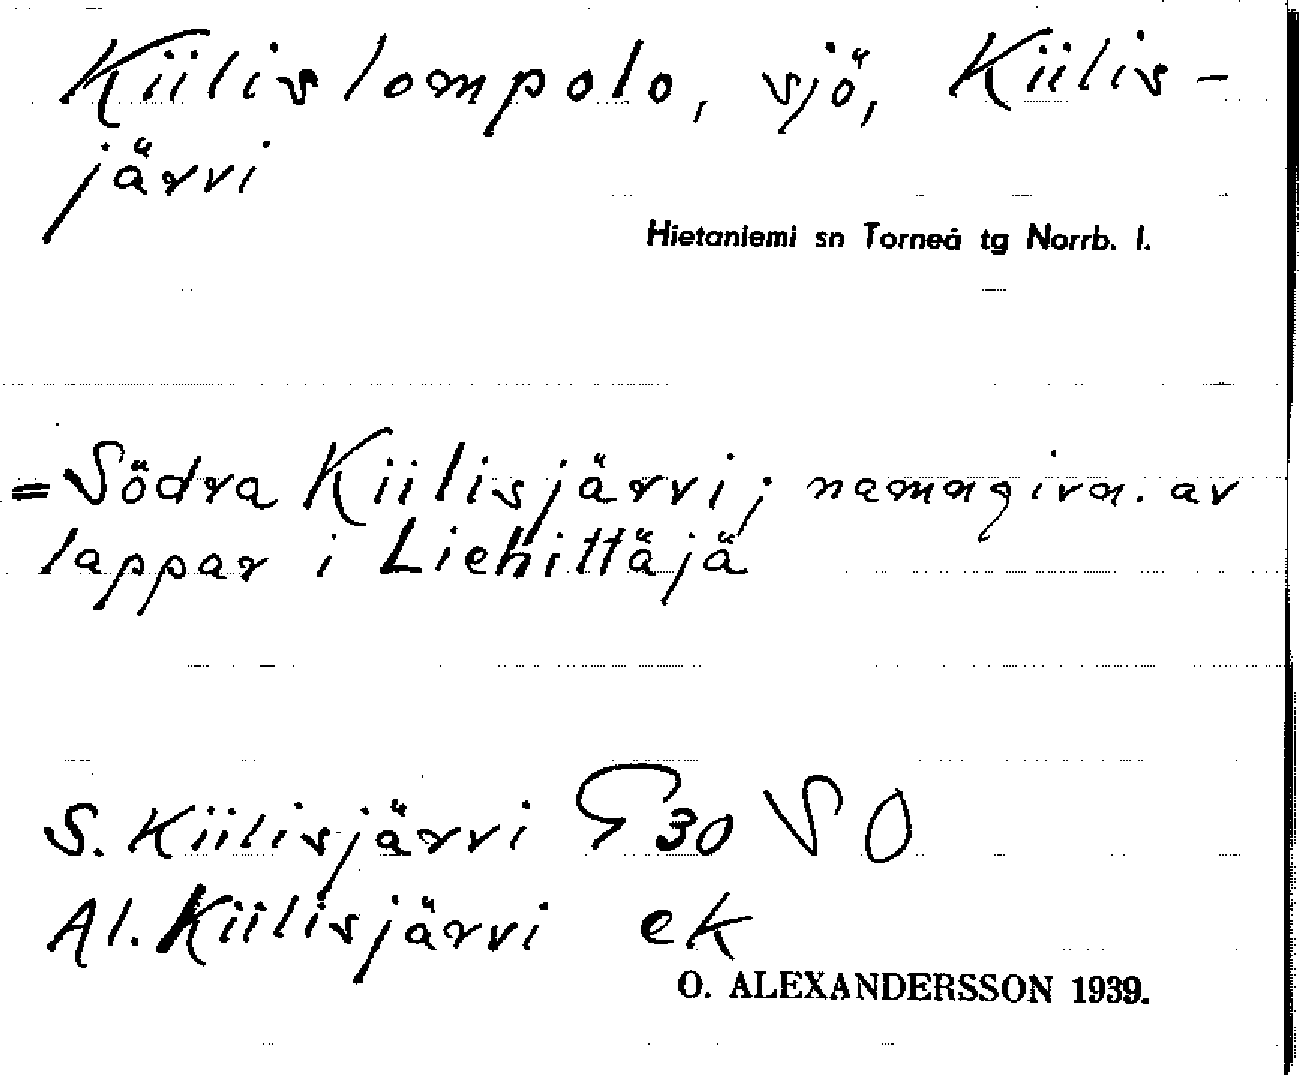 Kiilislompolo, sjö, Kiilis-
järvi
Hietaniemi sn Torneå tg Norrb. l.
= Södra Kiilisjärvi; namngivn. av
lappar i Liehittäjä
S. Kiilisjärvi G 30 SO
Al. Kiilisjärvi ek
O. ALEXANDERSSON 1939.